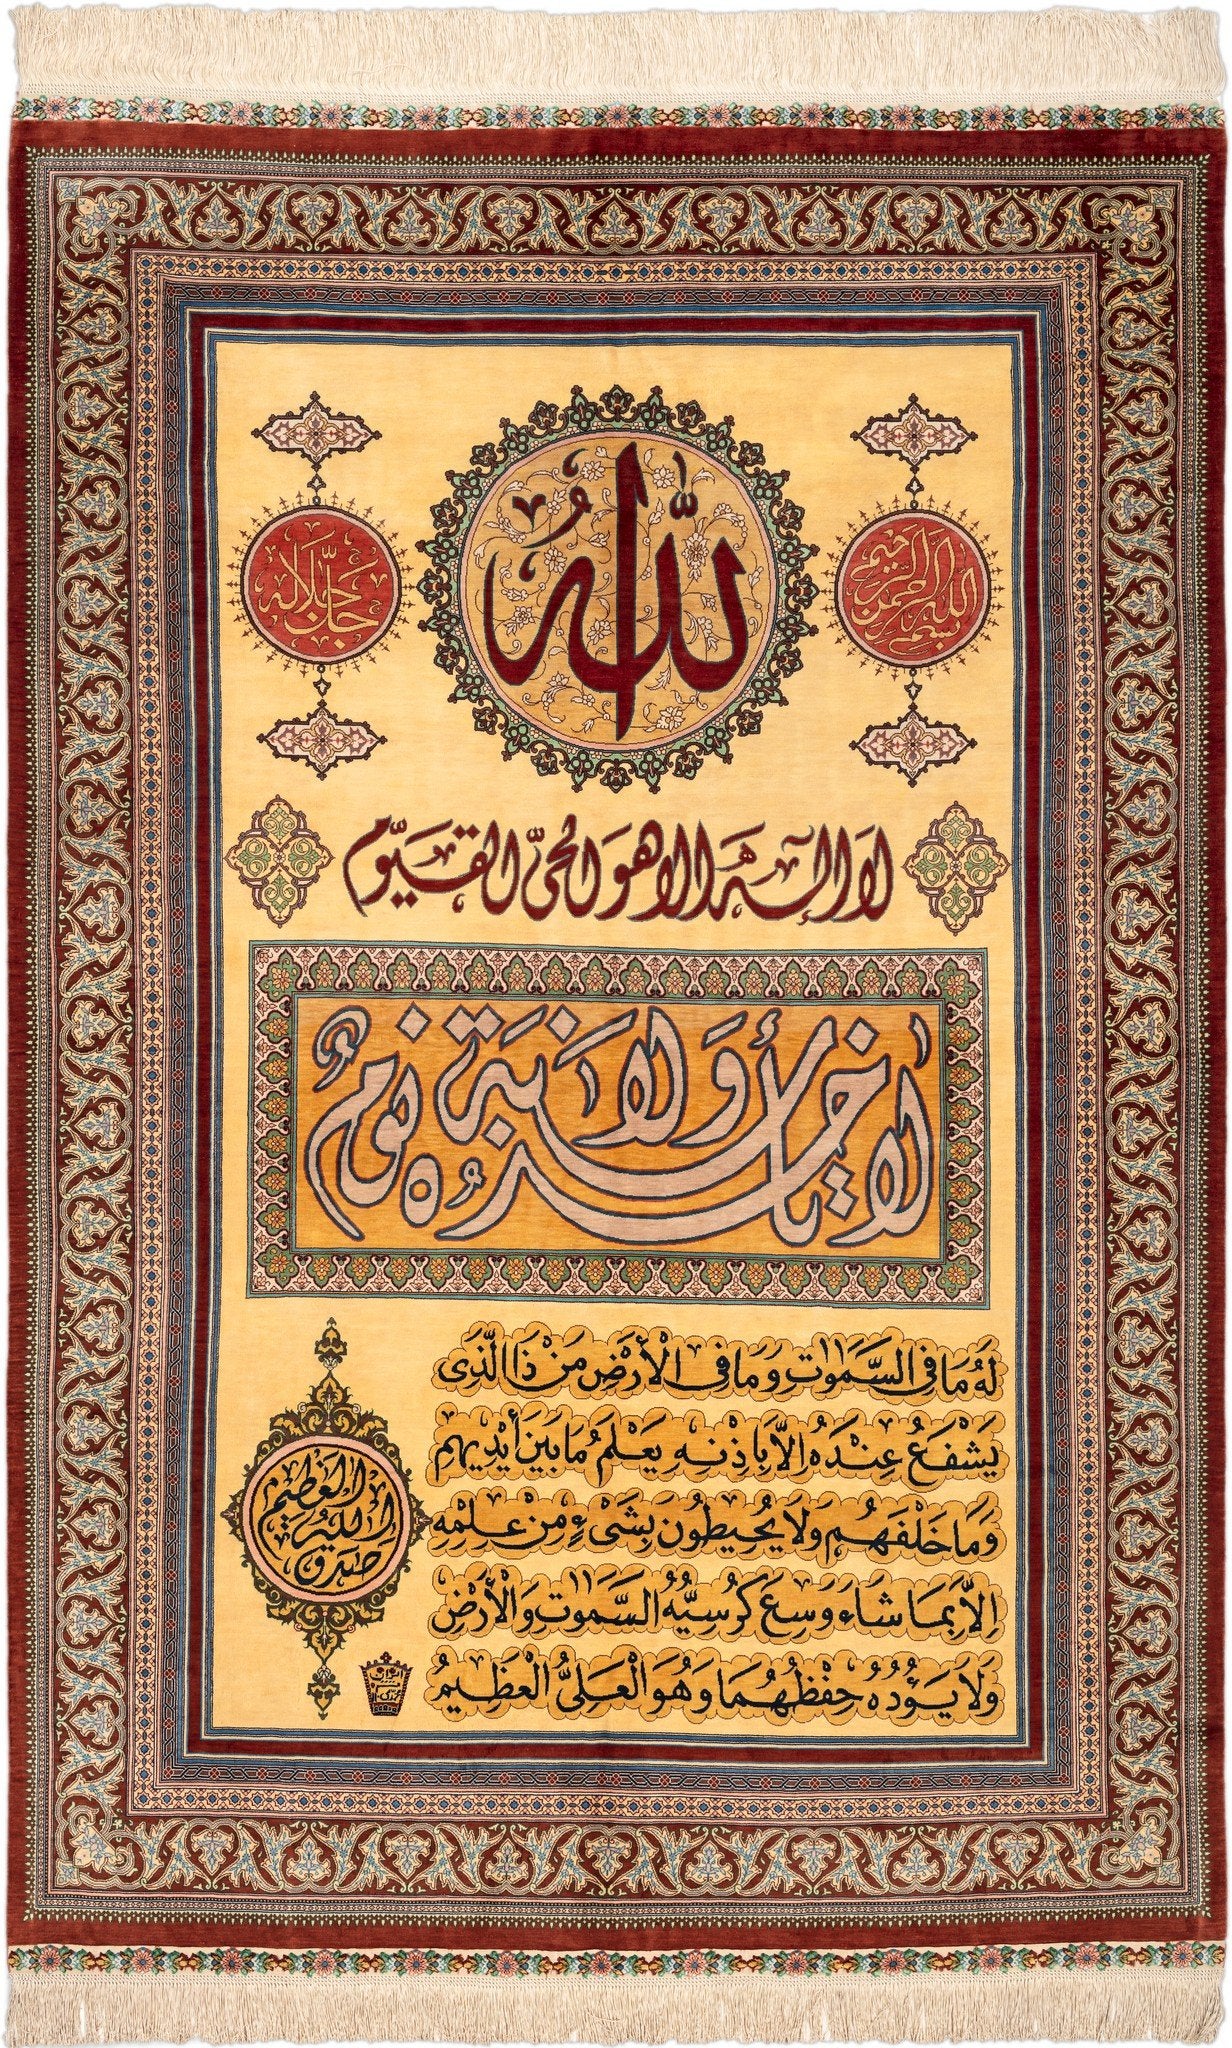 بسم الله الرحمن الرحيم
الله
جل جلاله
لا اله الا هو الحىّ القيّوم
لا تأخذه سنة ولا نومٌ
لَهُ مَا فِى السَّمٰوٰتِ وَمَا فِى الْأَرْضِ مَنْ ذَا الَّذِى
يَشْفَعُ عِنْدَهُ اِلَّا بِاِذْنِهِ يَعْلَمُ مَا بَيْنَ أَيْدِيهِم
وَمَا خَلْفَهُم وَلَا يُحِيطُونَ بِشَىْءٍ مِنْ عِلْمِهِ
اِلَّا بِمَا شَاءَ وَسِعَ كُرْسِيُّهُ السَّمٰوٰتِ وَالْأَرْضَ
وَلَا يَؤُدُهُ حِفْظُهُمَا وَهُوَ الْعَلِىُّ الْعَظِيمُ
صدق الله العظيم